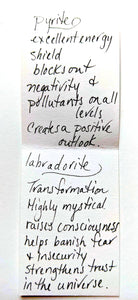 pyrite
excellent energy
shield
blocks out
negativity &
pollutants on all
levels
Creates a positive
outlook.
labradorite
Transformation
Highly mystical
raises consciousness
helps banish fear
& insecurity
strengthens trust
in the universe.